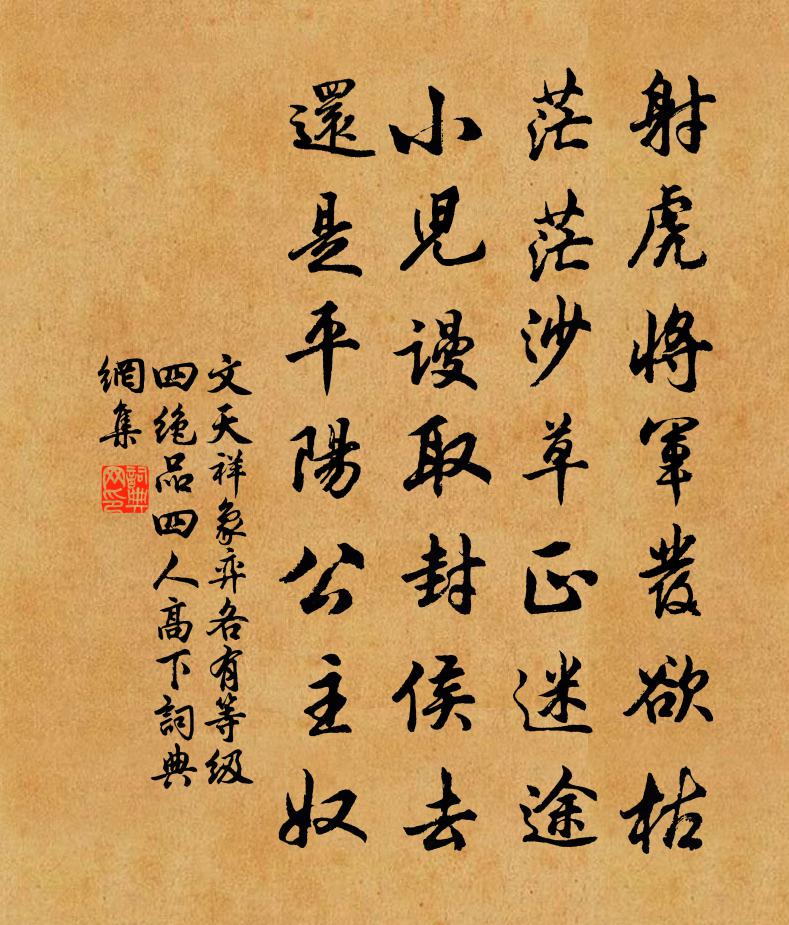 射虎將軍發欲枯
茫茫沙草正迷途
小兒謾取封侯去
還是平陽公主奴
文天祥象弈各有等級
四絶品四人高下詞典
網集
詞典網印